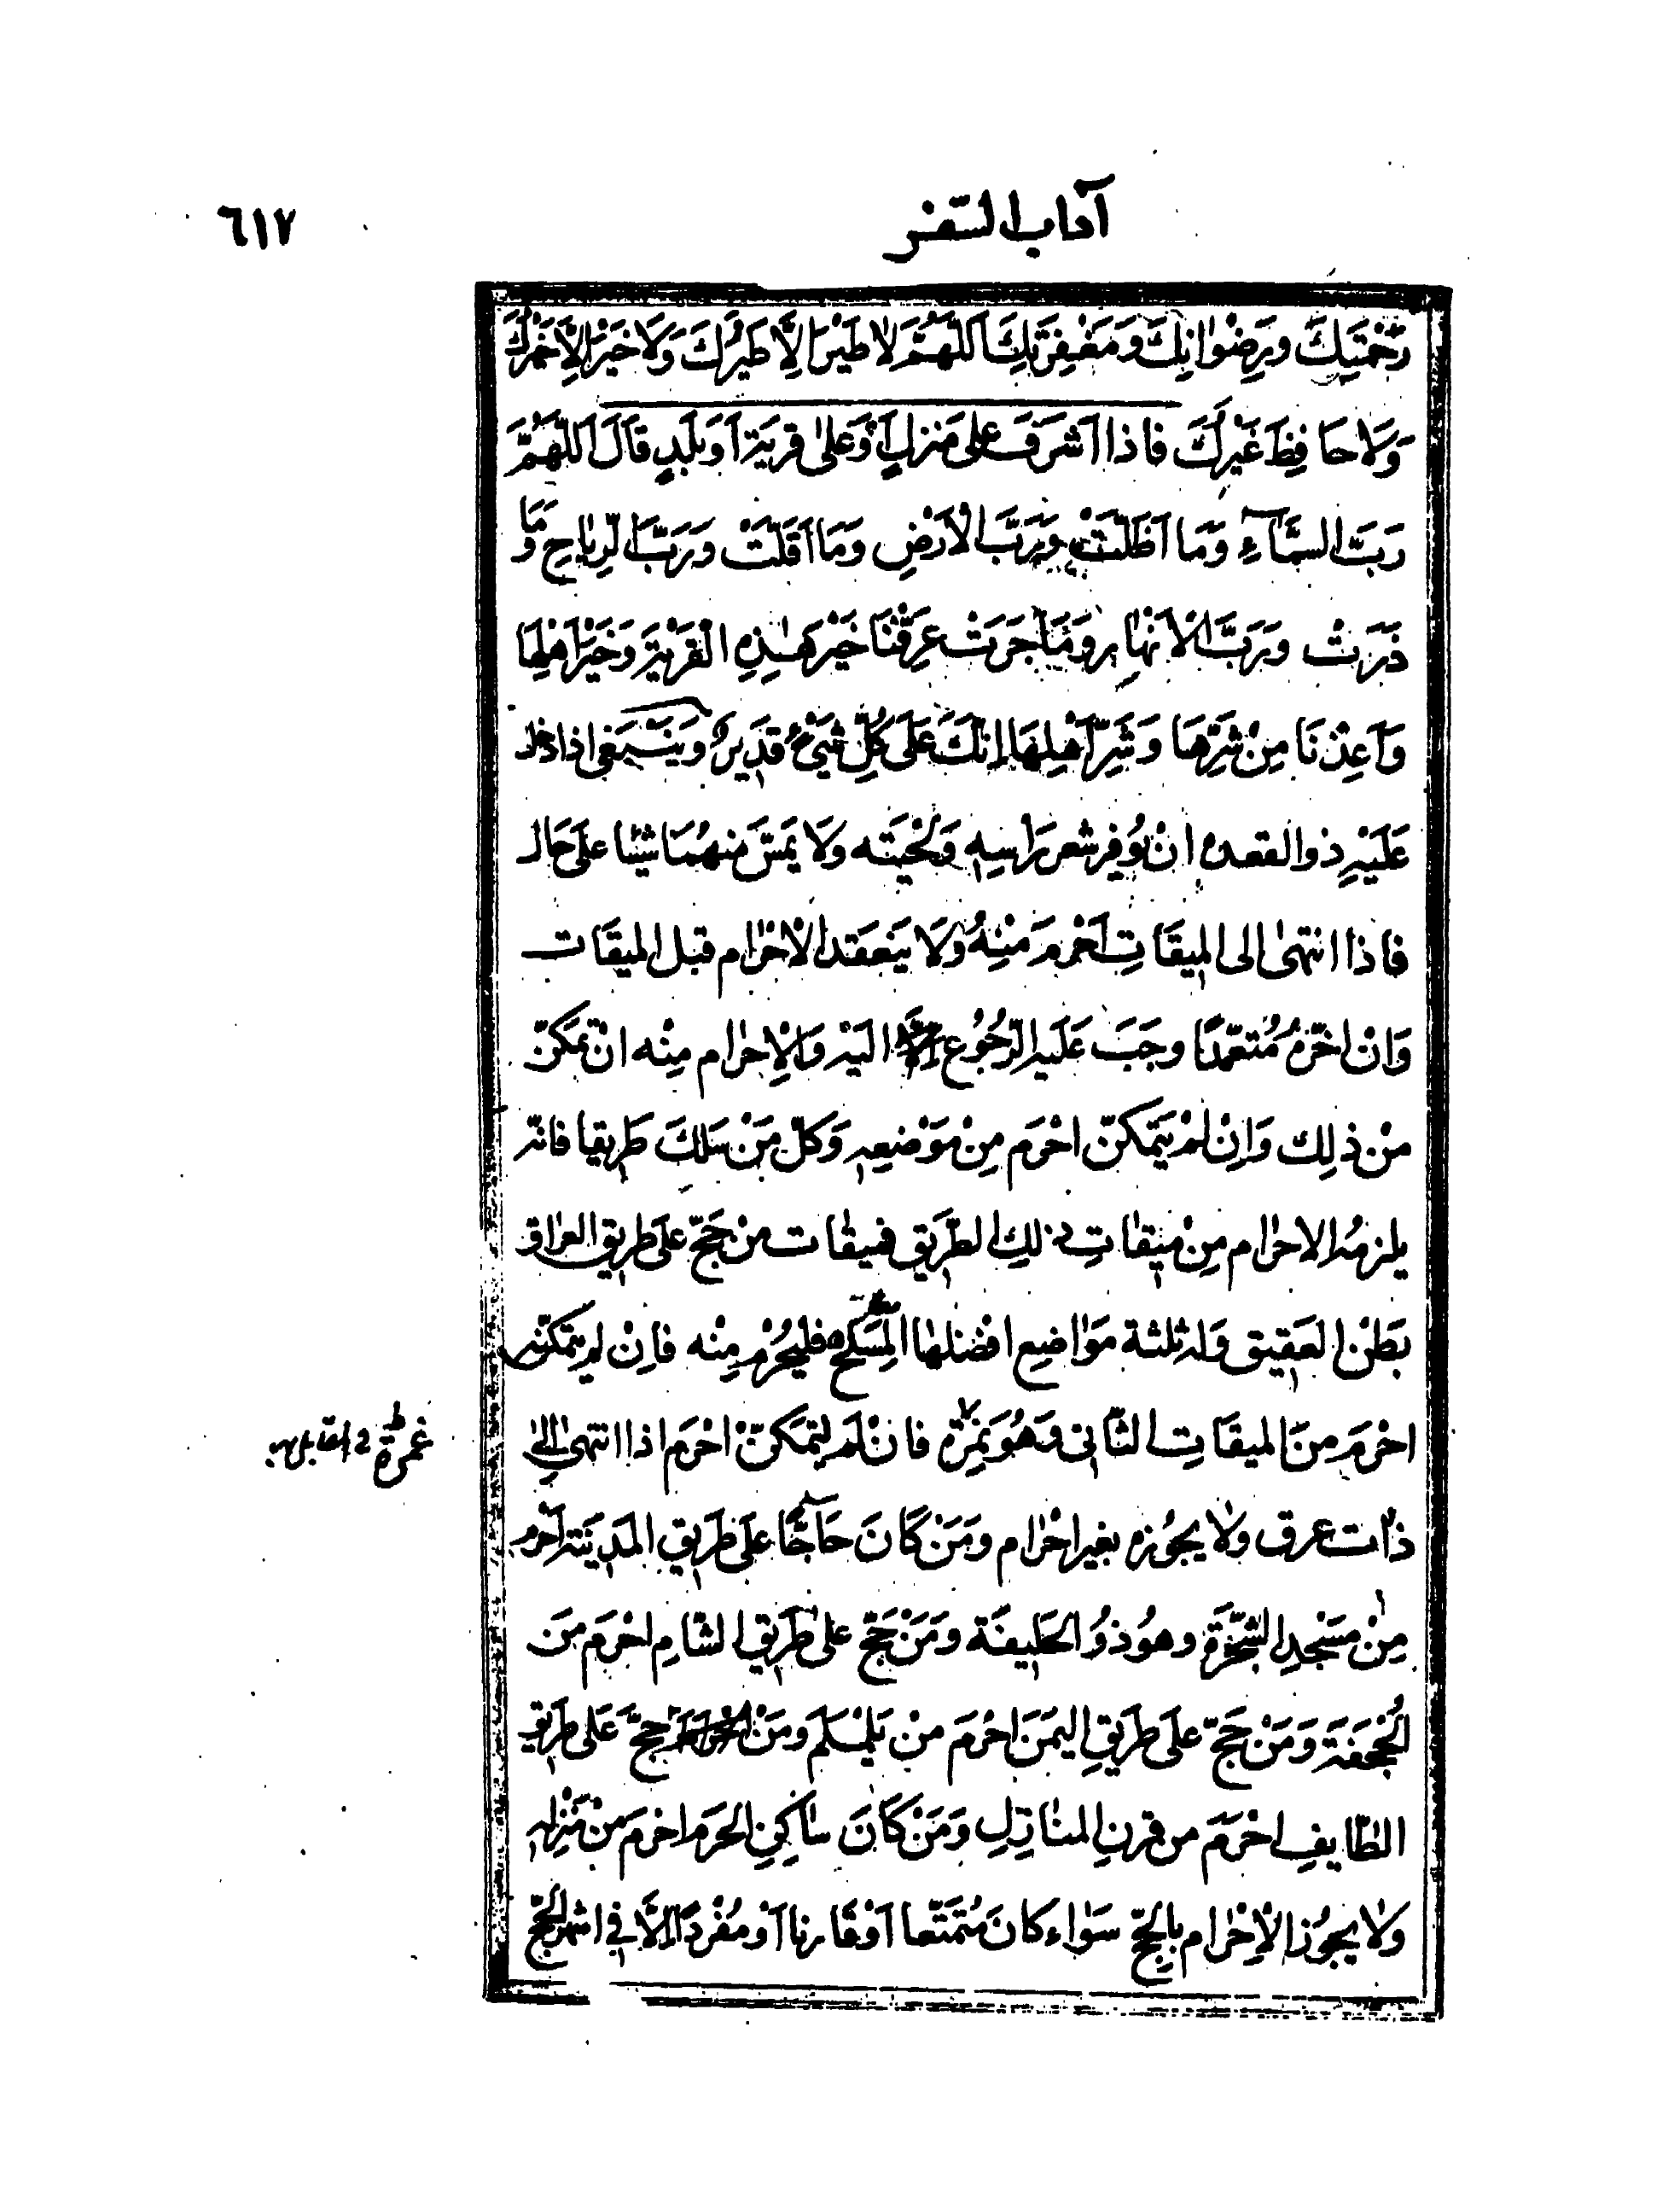 آداب السّفر
٦١٧
رَحْمَتِكَ وَرِضْوٰانِكَ وَمَغْفِرَتِكَ اَللّهُمَّ لاٰ طَيْرَ اِلَّا طَيْرُكَ وَلَا خَيْرَ اِلَّا خَيْرُكَ
وَلَا حَافِظَ غَيْرُكَ فاذا اَشرَفَ على مَنزِلٍ اَوْ عَلىٰ قريَة اَوبَلَدٍ قالَ اَللّهُمَّ
رَبَّ السَّمَآءِ وَمَا اَظَلَّتْ وَرَبَّ الْاَرْضِ وَمَا اَقَلَّتْ وَرَبَّ الرِّيٰاحِ وَمَا
ذَرَتْ وَرَبَّ الْاَنْهٰارِ وَمَا جَرَتْ عَرِّفْنَا خَيْرَ هٰذِهِ الْقَرْيَةِ وَخَيْرَ اَهْلِهَا
وَاَعِذْنَا مِنْ شَرِّهَا وَشَرِّ اَهْلِهَا اِنَّكَ عَلَى كُلِّ شَيْءٍ قَدِيرٌ وَيَنْبَغى اذا دخل
عَلَيْهِ ذوالقعده انْ يُوَفِّر شعر رَاسِهِ وَلِحْيَتَه وَلَا يَمَسّ مِنهُمَا شَيْئا على حَال
فاذا انتهىٰ الى الميقَاتِ اَحْرمَ مِنْهُ وَلَا يَنعَقد الْاحْرٰام قبل الميقَات
وَانْ اخّرَهُ مُتعَمّدًا وجَبَ عَلَيهِ الرّجُوُع اليَه وَالْاِحرٰام مِنْه انْ تمَكّنَ
منْ ذلِك وَاِنْ لَمْ يَتَمَكّن احْرَم مِنْ مَوْضِعِهِ وَكلّ مَنْ سَلكَ طَرِيقا فانّه
يلزمُه الاحرٰام مِنْ مِيقٰاتِ ذلِك الطّرَيقِ فميقٰات من حَجّ عَلى طرِيق العرٰاق
بَطنْ العَقِيق وَله ثلثة مَوٰاضِع افضلهٰا المِسَلح فليُحْرِم مِنْه فاِنْ لم يتمكّن
احْرَمَ مِنَ الميقَاتِ الثّانى وَهُوَ نَمِرَة فانْ لَم يَتمَكّنْ احْرَم اذا انتهىٰ اِلىٰ
غمرَة
ذٰات عرق وَلاٰ يجوُزه بغير احْرٰام ومَنْ كَانَ حَآجًّا عَلى طَرِيقِ المَدِينَة اَحْرَم
مِنْ مَسْجِدِ الشّجَرَة وهوُ ذُو الحَليفَة ومَنْ حَجّ على طَرِيقِ الشامِ احْرَم مِنَ
الجُحفَة وَمَنْ حَجّ على طَريقِ اليَمَنَ احْرَمَ منْ يَلَمْلَم ومَنْ حَجَّ عَلى طَرِيق
الطّايفِ احْرَمَ من قرنِ المنٰازِلِ وَمَنْ كَانَ سٰاكِن الحَرَم احْرمَ مِنْ مَنْزِلِهِ
وَلاٰ يجوُز الْاِحْرٰام بِالحَجّ سَوٰاء كانَ مُتَمَتّعا اَوْ قَارِنا اَو مُفْرِدًا اِلَّا فِي اشهر الحَجّ